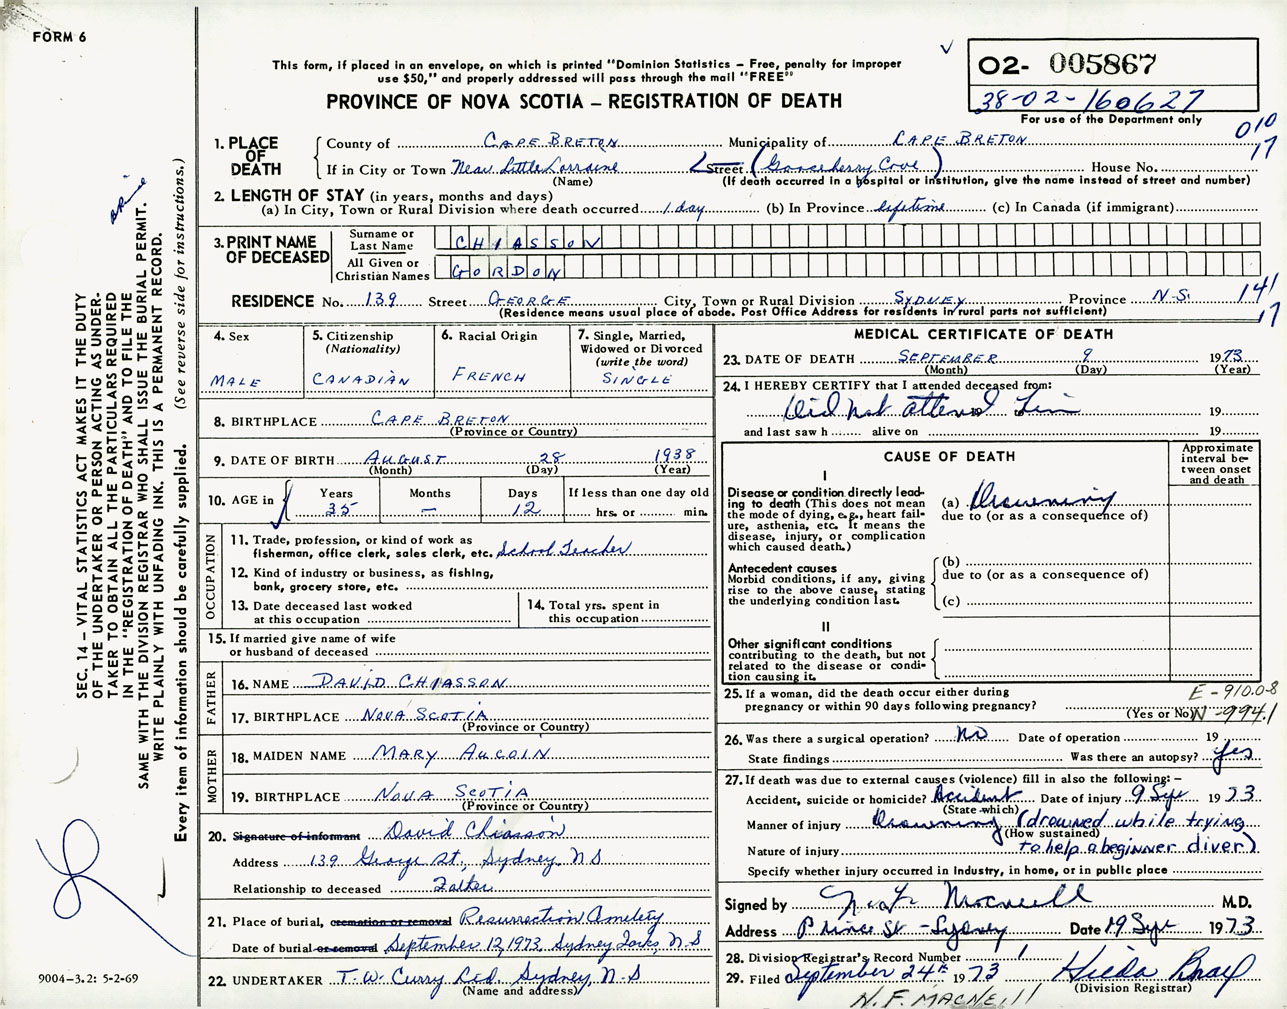 FORM 6
This form, if placed in an envelope, on which is printed "Dominion Statistics – Free, penalty for improper
use $50," and properly addressed will pass through the mail "FREE"
PROVINCE OF NOVA SCOTIA – REGISTRATION OF DEATH
O2- 005867
38-02-160627
For use of the Department only
010
17
1. PLACE OF DEATH
County of CAPE BRETON Municipality of CAPE BRETON
If in City or Town Near Little Lorraine Street (Gooseberry Cove) House No.
(Name) (If death occurred in a hospital or institution, give the name instead of street and number)
2. LENGTH OF STAY (in years, months and days)
(a) In City, Town or Rural Division where death occurred 1 day (b) In Province lifetime (c) In Canada (if immigrant)
3. PRINT NAME OF DECEASED
Surname or Last Name CHIASSON
All Given or Christian Names GORDON
RESIDENCE No. 139 Street GEORGE City, Town or Rural Division SYDNEY Province N.S.
141
17
(Residence means usual place of abode. Post Office Address for residents in rural parts not sufficient)
4. Sex
MALE
5. Citizenship
(Nationality)
CANADIAN
6. Racial Origin
FRENCH
7. Single, Married,
Widowed or Divorced
(write the word)
SINGLE
8. BIRTHPLACE CAPE BRETON
(Province or Country)
9. DATE OF BIRTH AUGUST 28 1938
(Month) (Day) (Year)
10. AGE in Years 35 Months – Days 12 If less than one day old
hrs. or min.
OCCUPATION
11. Trade, profession, or kind of work as
fisherman, office clerk, sales clerk, etc. School Teacher
12. Kind of industry or business, as fishing,
bank, grocery store, etc.
13. Date deceased last worked
at this occupation
14. Total yrs. spent in
this occupation
15. If married give name of wife
or husband of deceased
FATHER
16. NAME DAVID CHIASSON
17. BIRTHPLACE NOVA SCOTIA
(Province or Country)
MOTHER
18. MAIDEN NAME MARY AUCOIN
19. BIRTHPLACE NOVA SCOTIA
(Province or Country)
20. Signature of informant David Chiasson
Address 139 George St., Sydney NS
Relationship to deceased Father
21. Place of burial, cremation or removal Resurrection Cemetery
Date of burial or removal September 12, 1973, Sydney Forks, N.S
22. UNDERTAKER T.W. Curry Ltd, Sydney, N.S
(Name and address)
MEDICAL CERTIFICATE OF DEATH
23. DATE OF DEATH SEPTEMBER 9 1973
(Month) (Day) (Year)
24. I HEREBY CERTIFY that I attended deceased from:
Did not attend him 19 19
and last saw h alive on 19
CAUSE OF DEATH
Approximate
interval be-
tween onset
and death
I
Disease or condition directly lead-
ing to death (This does not
mean the mode of dying, e.g., heart fail-
ure, asthenia, etc. It means the
disease, injury, or complication
which caused death.)
(a) Drowning
due to (or as a consequence of)
Antecedent causes
Morbid conditions, if any, giving
rise to the above cause, stating
the underlying condition last.
(b)
due to (or as a consequence of)
(c)
II
Other significant conditions
contributing to the death, but not
related to the disease or condi-
tion causing it.
25. If a woman, did the death occur either during
pregnancy or within 90 days following pregnancy?
(Yes or No)
E-910.0-8
N-994.1
26. Was there a surgical operation? No Date of operation 19
State findings Was there an autopsy? yes
27. If death was due to external causes (violence) fill in also the following:–
Accident, suicide or homicide? Accident Date of injury 9 Sept 1973
(State which)
Manner of injury Drowning (drowned while trying
(How sustained)
Nature of injury to help a beginner diver)
Specify whether injury occurred in industry, in home, or in public place
Signed by MacNeill M.D.
Address Prince St - Sydney Date 19 Sept 1973
28. Division Registrar's Record Number 1
29. Filed September 24th 1973 Hilda
(Division Registrar)
N.F. MACNEILL
SEC. 14 – VITAL STATISTICS ACT MAKES IT THE DUTY
OF THE UNDERTAKER OR PERSON ACTING AS UNDER-
TAKER TO OBTAIN ALL THE PARTICULARS REQUIRED
IN THE "REGISTRATION OF DEATH" AND TO FILE THE
SAME WITH THE DIVISION REGISTRAR WHO SHALL ISSUE THE BURIAL PERMIT.
WRITE PLAINLY WITH UNFADING INK. THIS IS A PERMANENT RECORD.
Every item of information should be carefully supplied. (See reverse side for instructions.)
9004–3.2: 5-2-69